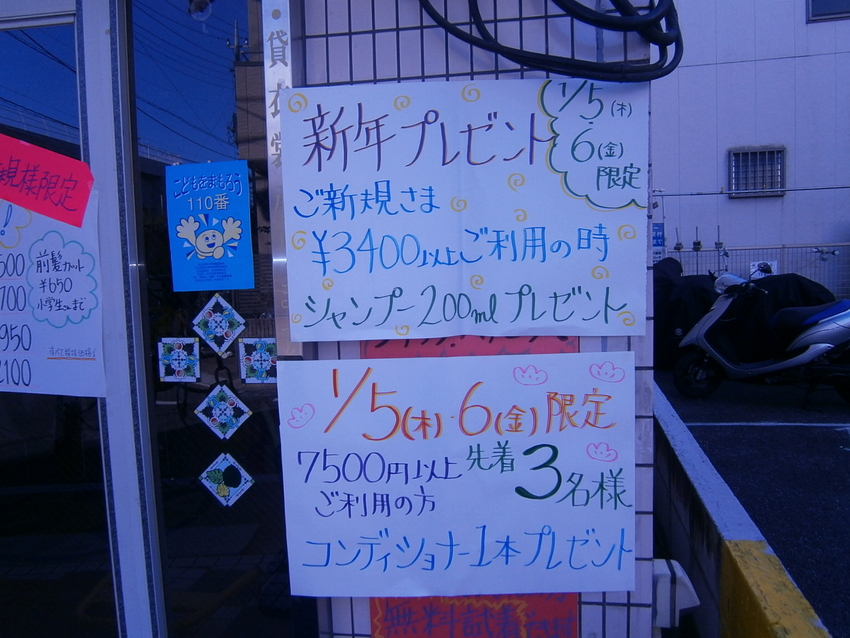 ・貸衣裳
規様限定
前髪カット
¥650
小学生まで
500
700
950
2100
こどもをまもろう
110番
新年プレゼント
1/5(木)
6(金)
限定
ご新規さま
¥3400以上ご利用の時
シャンプー200mlプレゼント
1/5(木)・6(金)限定
7500円以上
ご利用の方
先着
3名様
コンディショナー1本プレゼント
無料試着